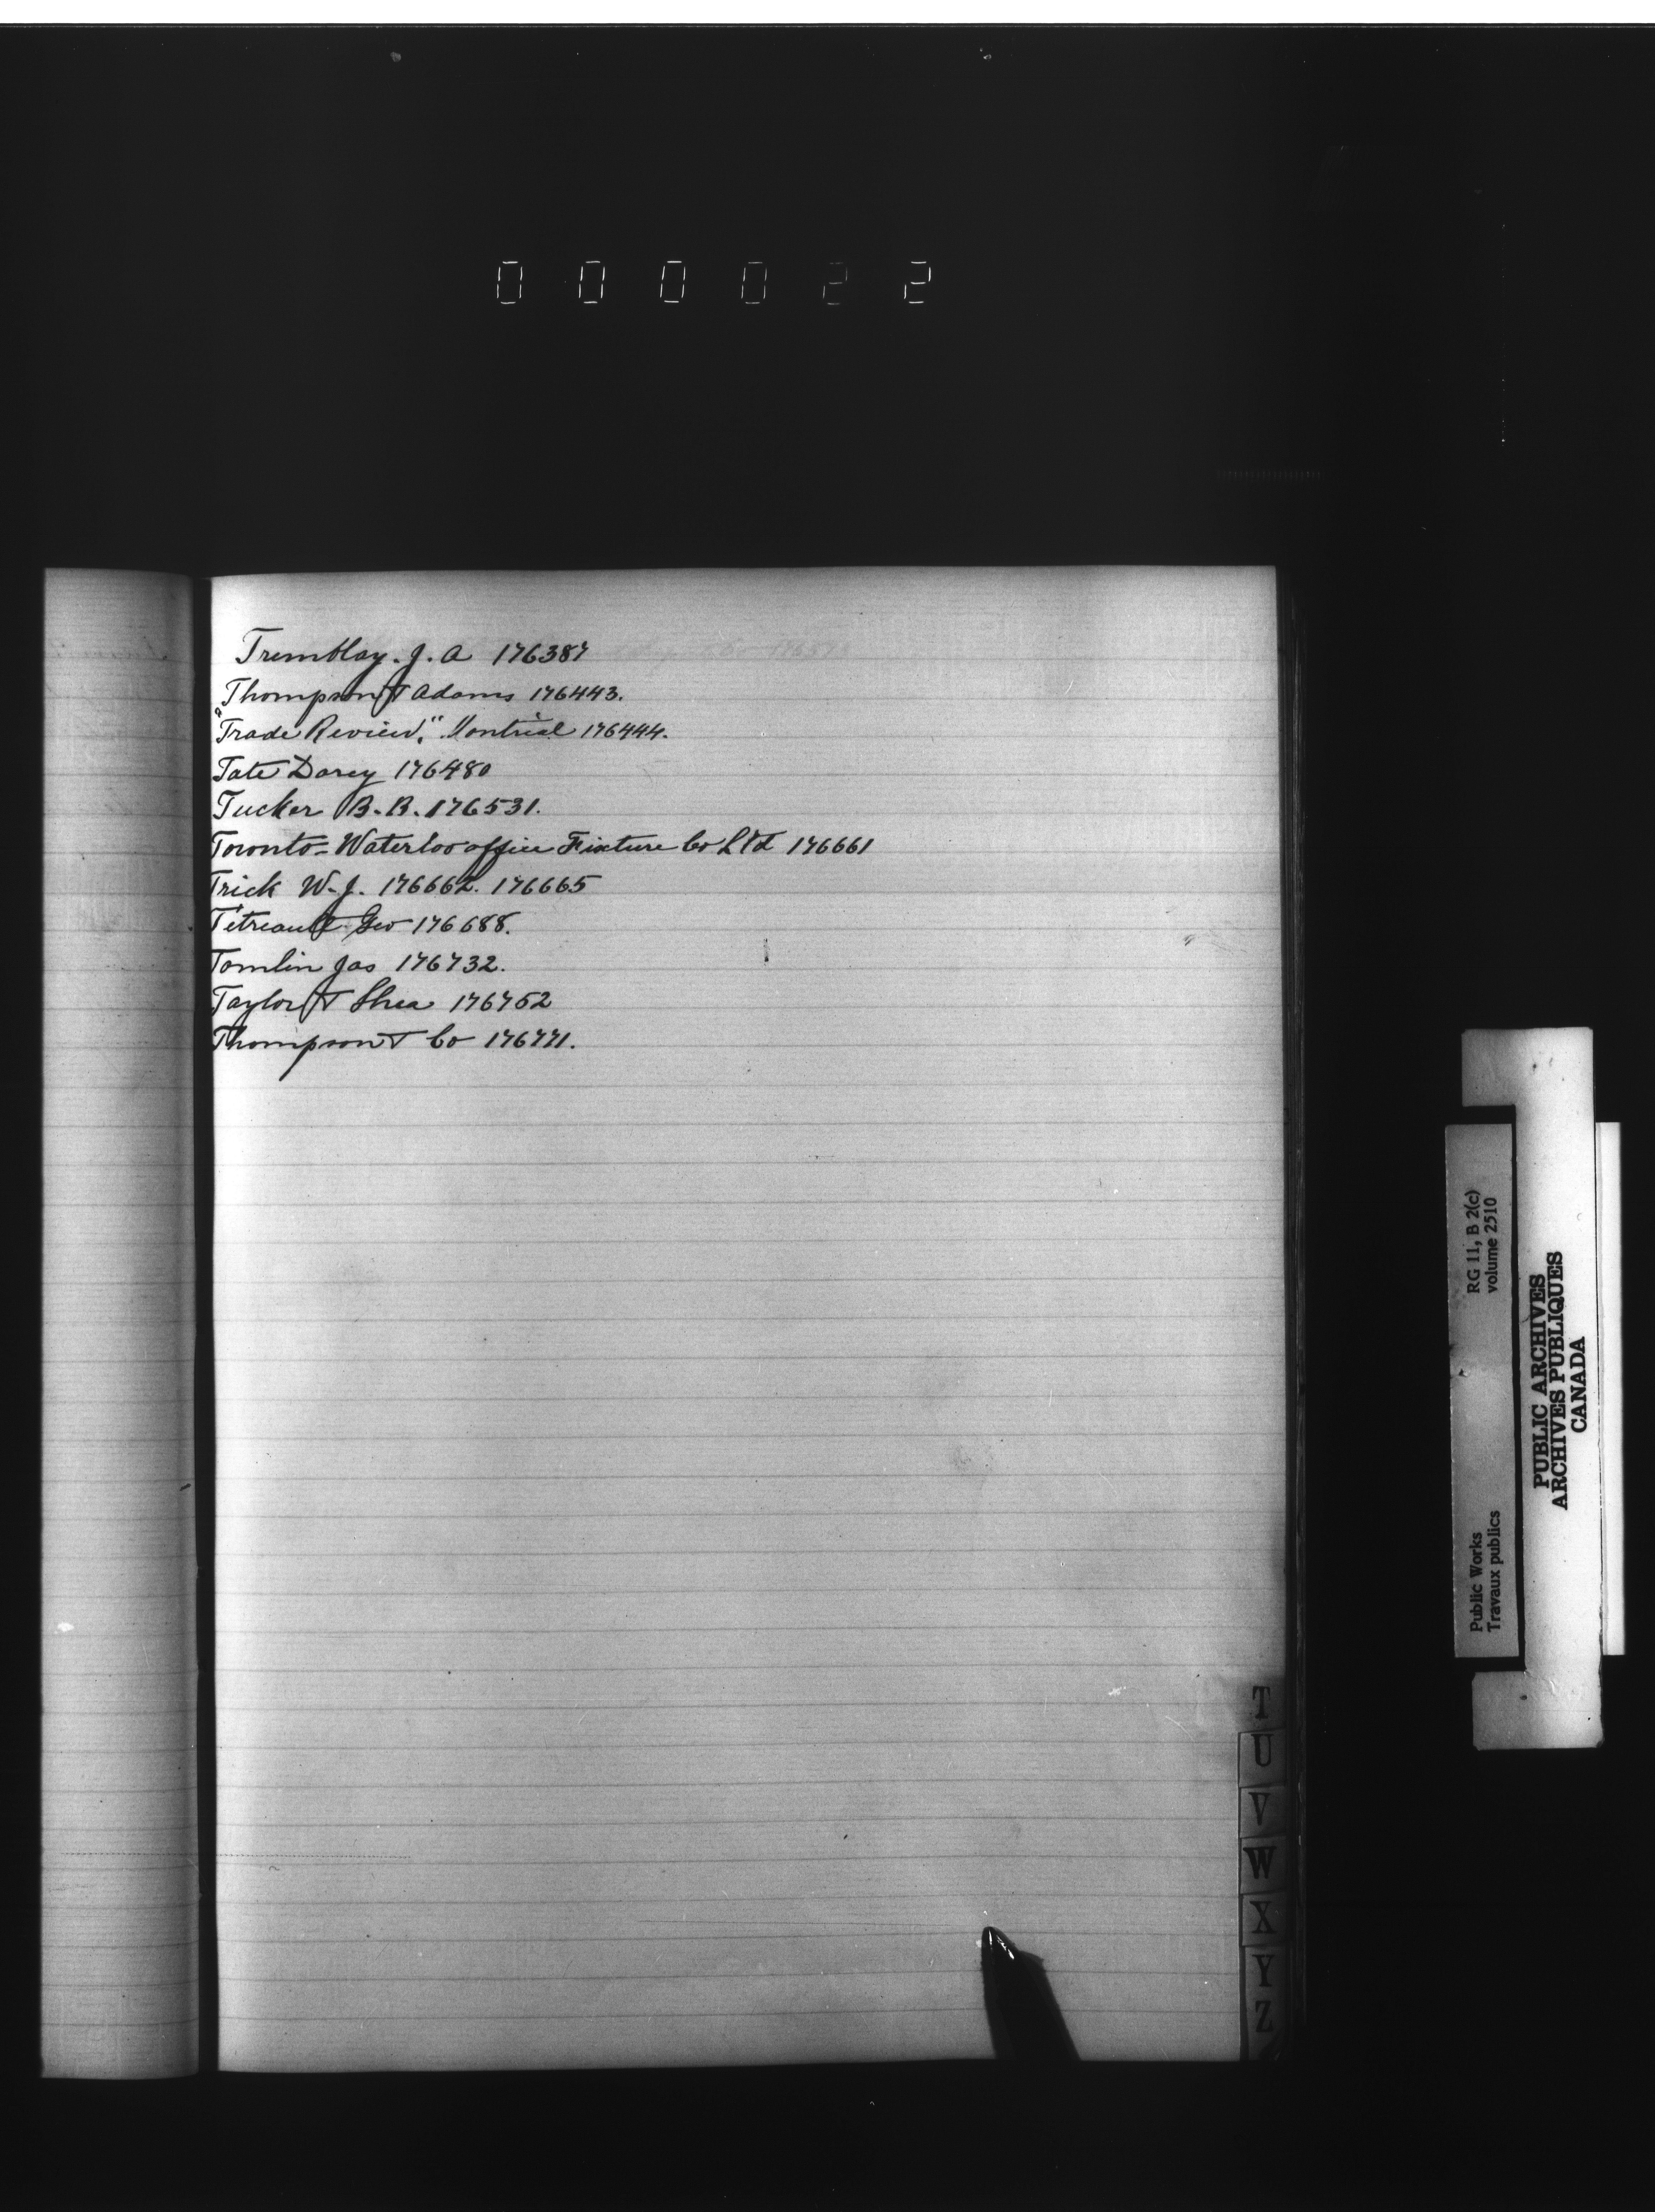 000022
Tremblay. J. A 176387
Thompson & Adams 176443.
"Trade Review," Montreal 176444.
Tate Darcy 176480
Tucker B. B. 176531.
Toronto-Waterloo office Fixture Co Ltd 176661
Trick W. J. 176662. 176665
Tétreault Geo 176688.
Tomlin Jas 176732.
Taylor & Shea 176752
Thompson & Co 176771.
T
U
V
W
X
Y
Z
Public Works
Travaux publics
RG 11, B 2(c)
volume 2510
PUBLIC ARCHIVES
ARCHIVES PUBLIQUES
CANADA